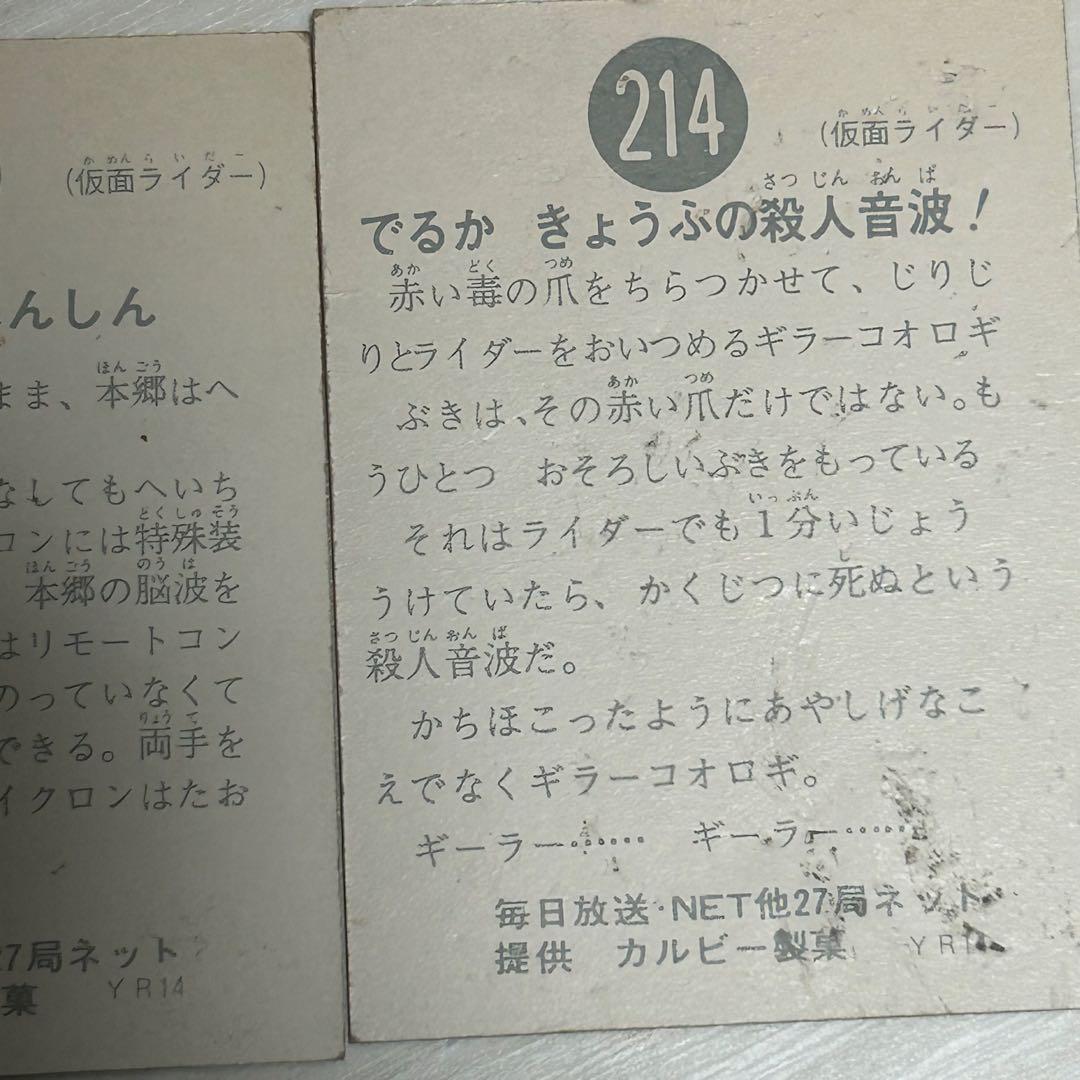 (仮面ライダー)
んしん
まま、本郷はへ
なしてもへいち
コンには特殊装
本郷の脳波を
はリモートコン
のっていなくて
できる。両手を
イクロンはたお
27局ネット
菓 YR14
214
(仮面ライダー)
でるか きょうふの殺人音波!
赤い毒の爪をちらつかせて、じりじ
りとライダーをおいつめるギラーコオロギ
ぶきは、その赤い爪だけではない。も
うひとつ おそろしいぶきをもっている
それはライダーでも1分いじょう
うけていたら、かくじつに死ぬという
殺人音波だ。
かちほこったようにあやしげなこ
えでなくギラーコオロギ。
ギーラー…… ギーラー……
毎日放送・NET他27局ネット
提供 カルビー製菓 YR1